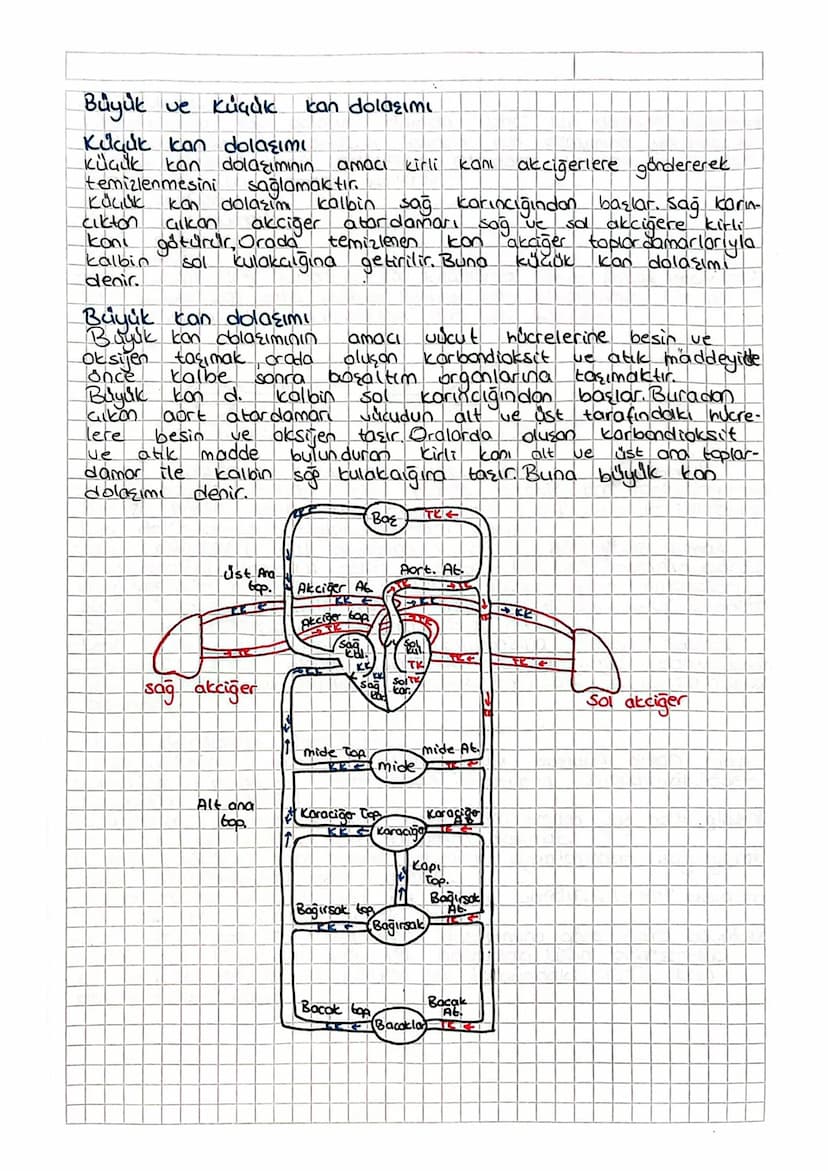 Büyük ve Küçük kan dolaşımı
Küçük kan dolaşımı
Küçük kan dolaşımının amacı kirli kanı akciğerlere göndererek
temizlenmesini sağlamaktır.
Küçük kan dolaşım kalbin sağ karıncığından başlar. Sağ karın-
cıktan çıkan akciğer atardamarı sağ ve sol akciğere kirli
kanı götürür, Orada temizlenen kan akciğer toplardamarlarıyla
kalbin sol kulakçığına getirilir. Buna küçük kan dolaşımı
denir.
Büyük kan dolaşımı
Büyük kan dolaşımının amacı vücut hücrelerine besin ve
oksijen taşımak, orada oluşan karbondioksit ve atık maddeyide
önce kalbe sonra boşaltım organlarına taşımaktır.
Büyük kan d. kalbin sol karıncığından başlar. Buradan
çıkan aort atardamarı vücudun alt ve üst tarafındaki hücre-
lere besin ve oksijen taşır. Oralarda oluşan karbondioksit
ve atık madde bulunduran kirli kanı alt ve üst ana toplar-
damar ile kalbin sağ kulakçığına taşır. Buna büyük kan
dolaşımı denir.
Baş TK ←
Üst Ana top.
Aort. At.
Akciğer At.
TK TK
KK ← KK ← → KK → KK
Akciğer top
TK TK
Sağ kul. Sol kul.
→ TK TK ← TK ←
KK TK
KK ← Sağ kar. KK Sol kar. TK
sağ akciğer
Sol akciğer
mide Top. mide At.
KK ← mide TK ←
Alt ana top.
Karaciğer Top. Karaciğer At.
KK ← Karaciğer TK ←
Kapı Top.
Bağırsak top. Bağırsak At.
KK ← Bağırsak TK ←
Bacak top Bacak At.
KK ← Bacaklar TK ←